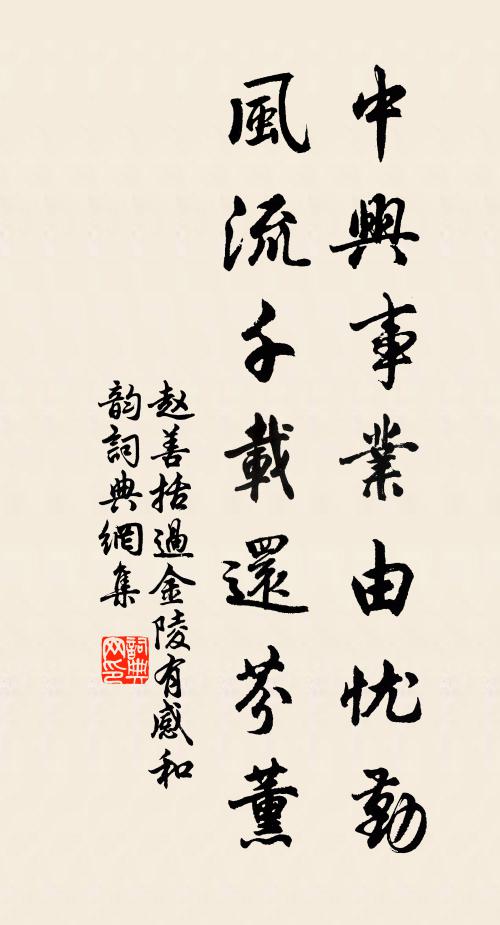 中興事業由忧勤
風流千載還芬薰
赵善括過金陵有感和
韵詞典網集
詞典网印